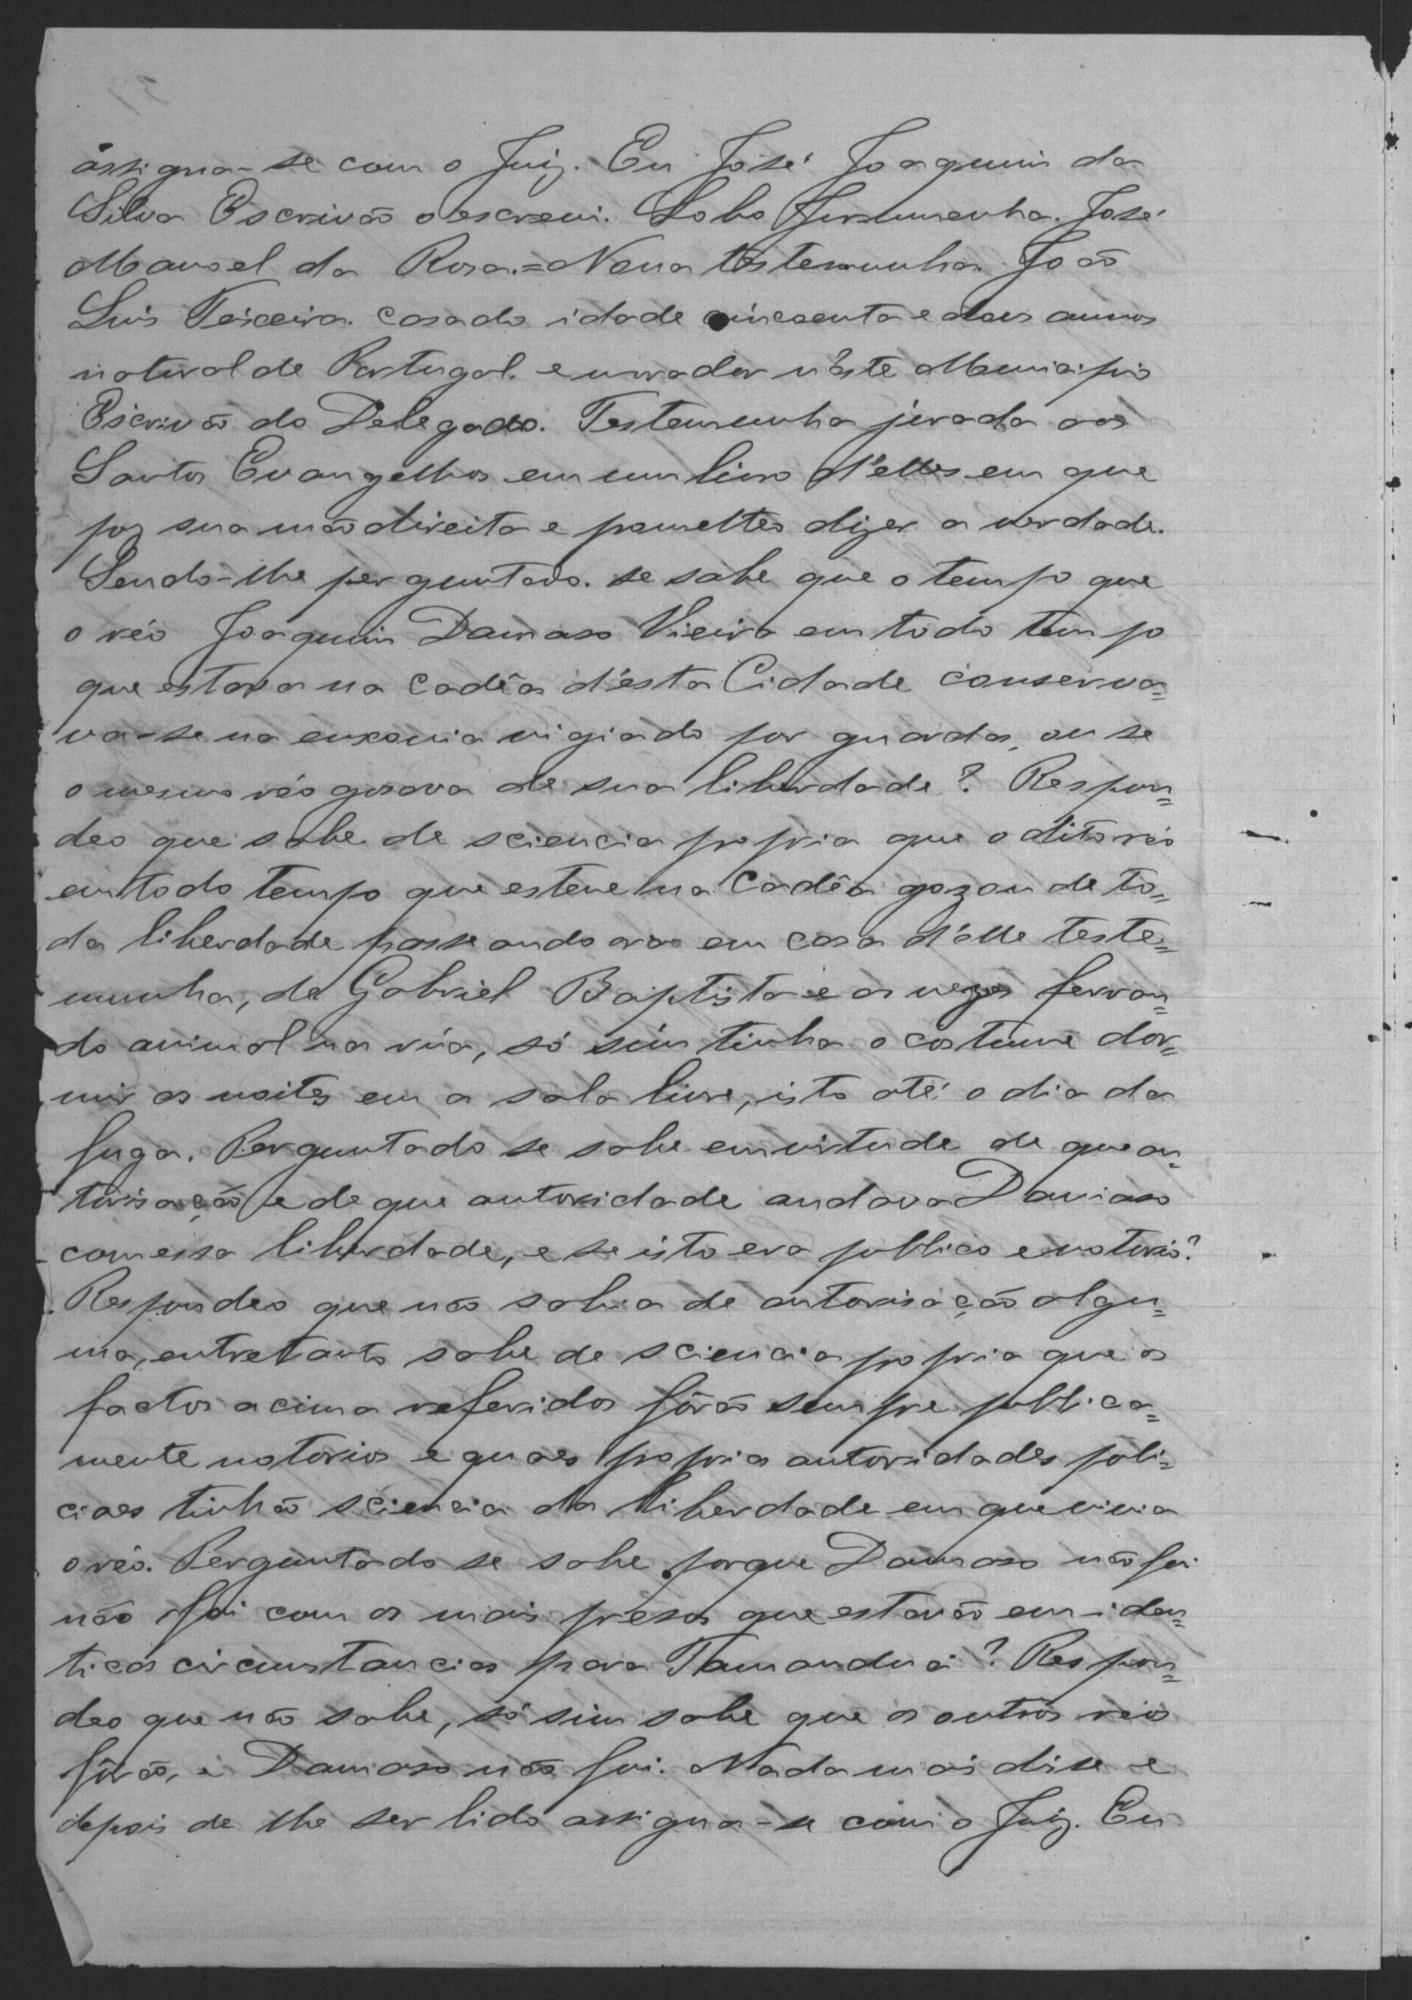 assigna-se com o Juiz. Eu José Joaquim da
Silva Escrivão o escrevi. Lobo Jurumenha. José
Manoel da Rosa.=Nona testemunha João
Luis Teixeira. casado idade cincoenta e dous annos
natural de Portugal. e morador n'este Municipio
Escrivão do Delegado. Testemunha jurada aos
Santos Evangelhos em um livro d'elles em que
poz sua mão direita e prometteo dizer a verdade.
Sendo-lhe perguntado. se sabe que o tempo que
o réo Joaquim Damaso Vieira em todo tempo
que estava na Cadêa d'ésta Cidade conserva=
va-se na enxovia vigiado por guardas, ou se
o mesmo réo gosava de sua liberdade? Respon=
deo que sabe de sciencia propria que o dito réo
em todo tempo que esteve na Cadêa gozou de to=
da liberdade passeando ora em casa d'elle teste=
munha, de Gabriel Baptista e as vezes ferran=
do animal na rúa, só sim tinha o costume dor=
mir as noites em a sala livre, isto até o dia da
fuga. Perguntado se sabe em virtude de que au=
torisação e de que autoridade andava Damaso
com essa liberdade, e se isto era publico e notorio?
Respondeo que não sabia de autorisação algu=
ma, entretanto sabe de sciencia propria que os
factos acima referidos fôrão sempre publica=
mente notorios e quaes propria autoridades poli=
ciaes tinhão sciencia da liberdade em que vivia
o réo. Perguntado se sabe porque Damaso não foi
não foi com os mais presos que estavão em iden=
ticas circunstancias para Tamanduá? Respon=
deo que não sabe, só sim sabe que os outros réos
fôrão, e Damaso não foi. Nada mais disse e
depois de lhe ser lido assigna-se com o Juiz. Eu